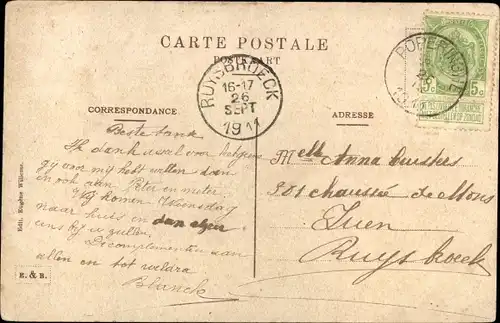 CARTE POSTALE
POSTKAART
RUYSBROECK
16-17
26
SEPT
1911
POPERINGHE
26
5c
CORRESPONDANCE
ADRESSE
Beste tante
Ik dank u wel voor hetgeen
gij voor mij hebt willen doen
en ook aken Peter en meter
Wij komen Woensdag
naar huis en dan elgen
ens bij u gullen.
De complementen aan
allen en tot weldra
Blanck
Melle Anna
201 chaussée de Mons
Ruysbroeck
Edit. Eugène Willems.
E. & B.